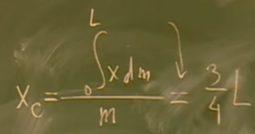 x_c = ∫₀ᴸ x dm / m = 3/4 L